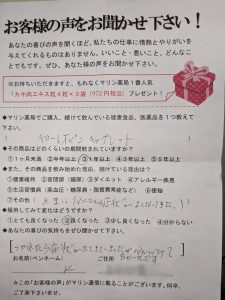 お客様の声をお聞かせ下さい!
あなたの喜びの声を聞くほど、私たちの仕事に情熱とやりがいを
与えてくれるものはありません。いいこと・悪いこと、どんなこ
とでもです。ぜひ、あなた様の声をお聞かせ下さい。
※お持ちいただきますと、もれなくマリン薬局1番人気
「カキ肉エキス粒4粒×3袋(972円相当)プレゼント!
●マリン薬局でご購入、続けて飲んでいる健康食品、医薬品を1つ教えて
下さい。
●その商品はどのくらいの期間飲まれていますか?
①1ヶ月未満 ②半年以上 ③1年以上 ④3年以上 ⑤5年以上
●また、その商品を飲み始めた理由、続けている理由は?
①健康維持 ②夜間頻 ③ダイエット ④アレルギー疾患
⑤生活習慣病(高血圧・糖尿病・脂質異常症など) ⑥便秘
⑦その他(
●服用してみて変化はどうですか?
①とても良くなった ②良くなった ③少し良くなった ④分からない
●あなたの喜びの気持ちをお聞かせ下さい。
お名前(ペンネーム) ご住所
★この「お客様の声」がマリン通信に載ることがございます。何卒、
ご了承下さいませ。